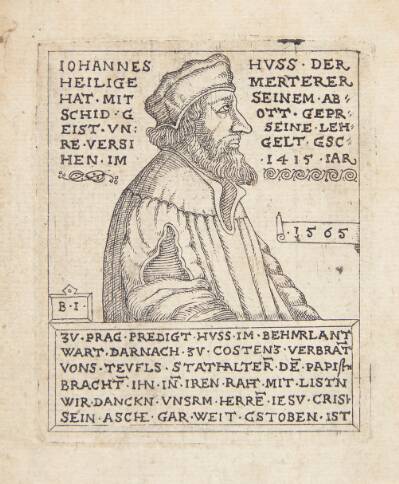 IOHANNES HVSS · DER
HEILIGE MERTERER
HAT · MIT SEINEM · AB⸗
SCHID · G OTT · GEPR⸗
EIST · VN: SEINE · LEH⸗
RE · VERSI GELT · GSC⸗
HEN · IM · 1415 · IAR
· 1565
B · I ·
ZV · PRAG · PREDIGT · HVSS · IM · BEHMRLANT
WART · DARNACH · ZV · COSTENZ · VERBRAT̄
VONS · TEVFLS · STATHALTER̄ · DĒ · PAPIST
BRACHT̄ · IHN · IN̄ · IREN · RAHT · MIT · LISTN
WIR · DANCKN · VNSRM · HERRĒ · IESV · CRIST
SEIN · ASCHE · GAR · WEIT · GSTOBEN · IST